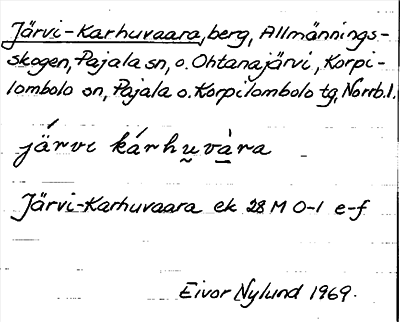 Järvi-Karhuvaara, berg, Allmännings-
skogen, Pajala sn, o. Ohtanajärvi, Korpi-
lombolo sn, Pajala o. Korpilombolo tg, Norrb.l.
já̈rvi kárhu̮và̱ra
Järvi-Karhuvaara ek 28 M 0-1 e-f
Eivor Nylund 1969.